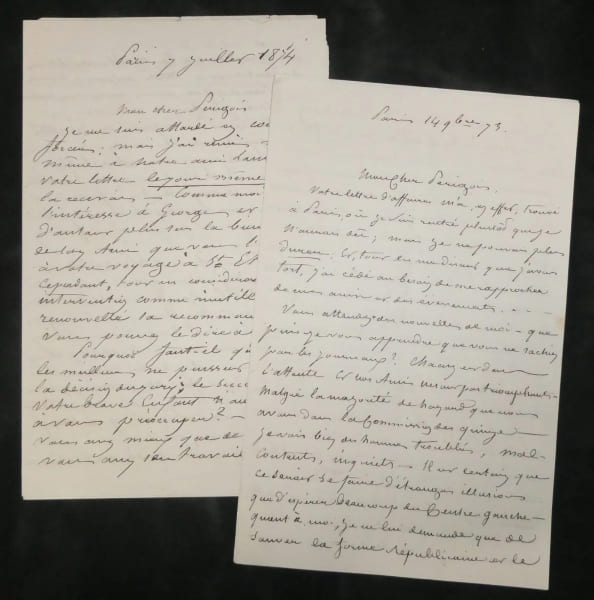 Paris 7 juillet 1874
Mon cher Périgois
Je me suis attardé
mais j'ai remis
même à notre ami
votre lettre le jour même
la recevais — Comme moi
s'intéresse à George et
d'autant plus
de son ami que vous
à votre voyage à St
Cependant, tout en
intervention comme inutile
renouvellé sa recomm
Vous pouvez le dire à
Pourquoi faut-il
les meilleurs ne puissent
la décision du jury; le succ
votre brave enfant n'au
à vous préoccuper? —
vous avez mieux que de
vous avez
Paris 14 9bre 73.
Mon Cher Périgois.
Votre lettre d'affaires m'a, en effet, trouvé
à Paris, où je suis rentré plustôt que je
n'aurais dû; mais je ne pouvais plus
durer: Et, tout en me disant que j'avais
tort, j'ai cédé au besoin de me rapprocher
de mes amis et des évènements. . . .
Vous attendez des nouvelles de moi — que
puis-je vous apprendre que vous ne sachiez
par les journaux? Chacun est dans
l'attente Et nos Amis ne sont pas triomphants —
Malgré la majorité de que nous
avons dans la Commission des quinze
je vois bien des hommes troublés, mal-
contents, inquiets — Il est certain que
ce serait se faire d'étranges illusions
que d'espérer beaucoup du Centre gauche —
quant à moi, je ne lui demande que de
sauver la forme républicaine et le